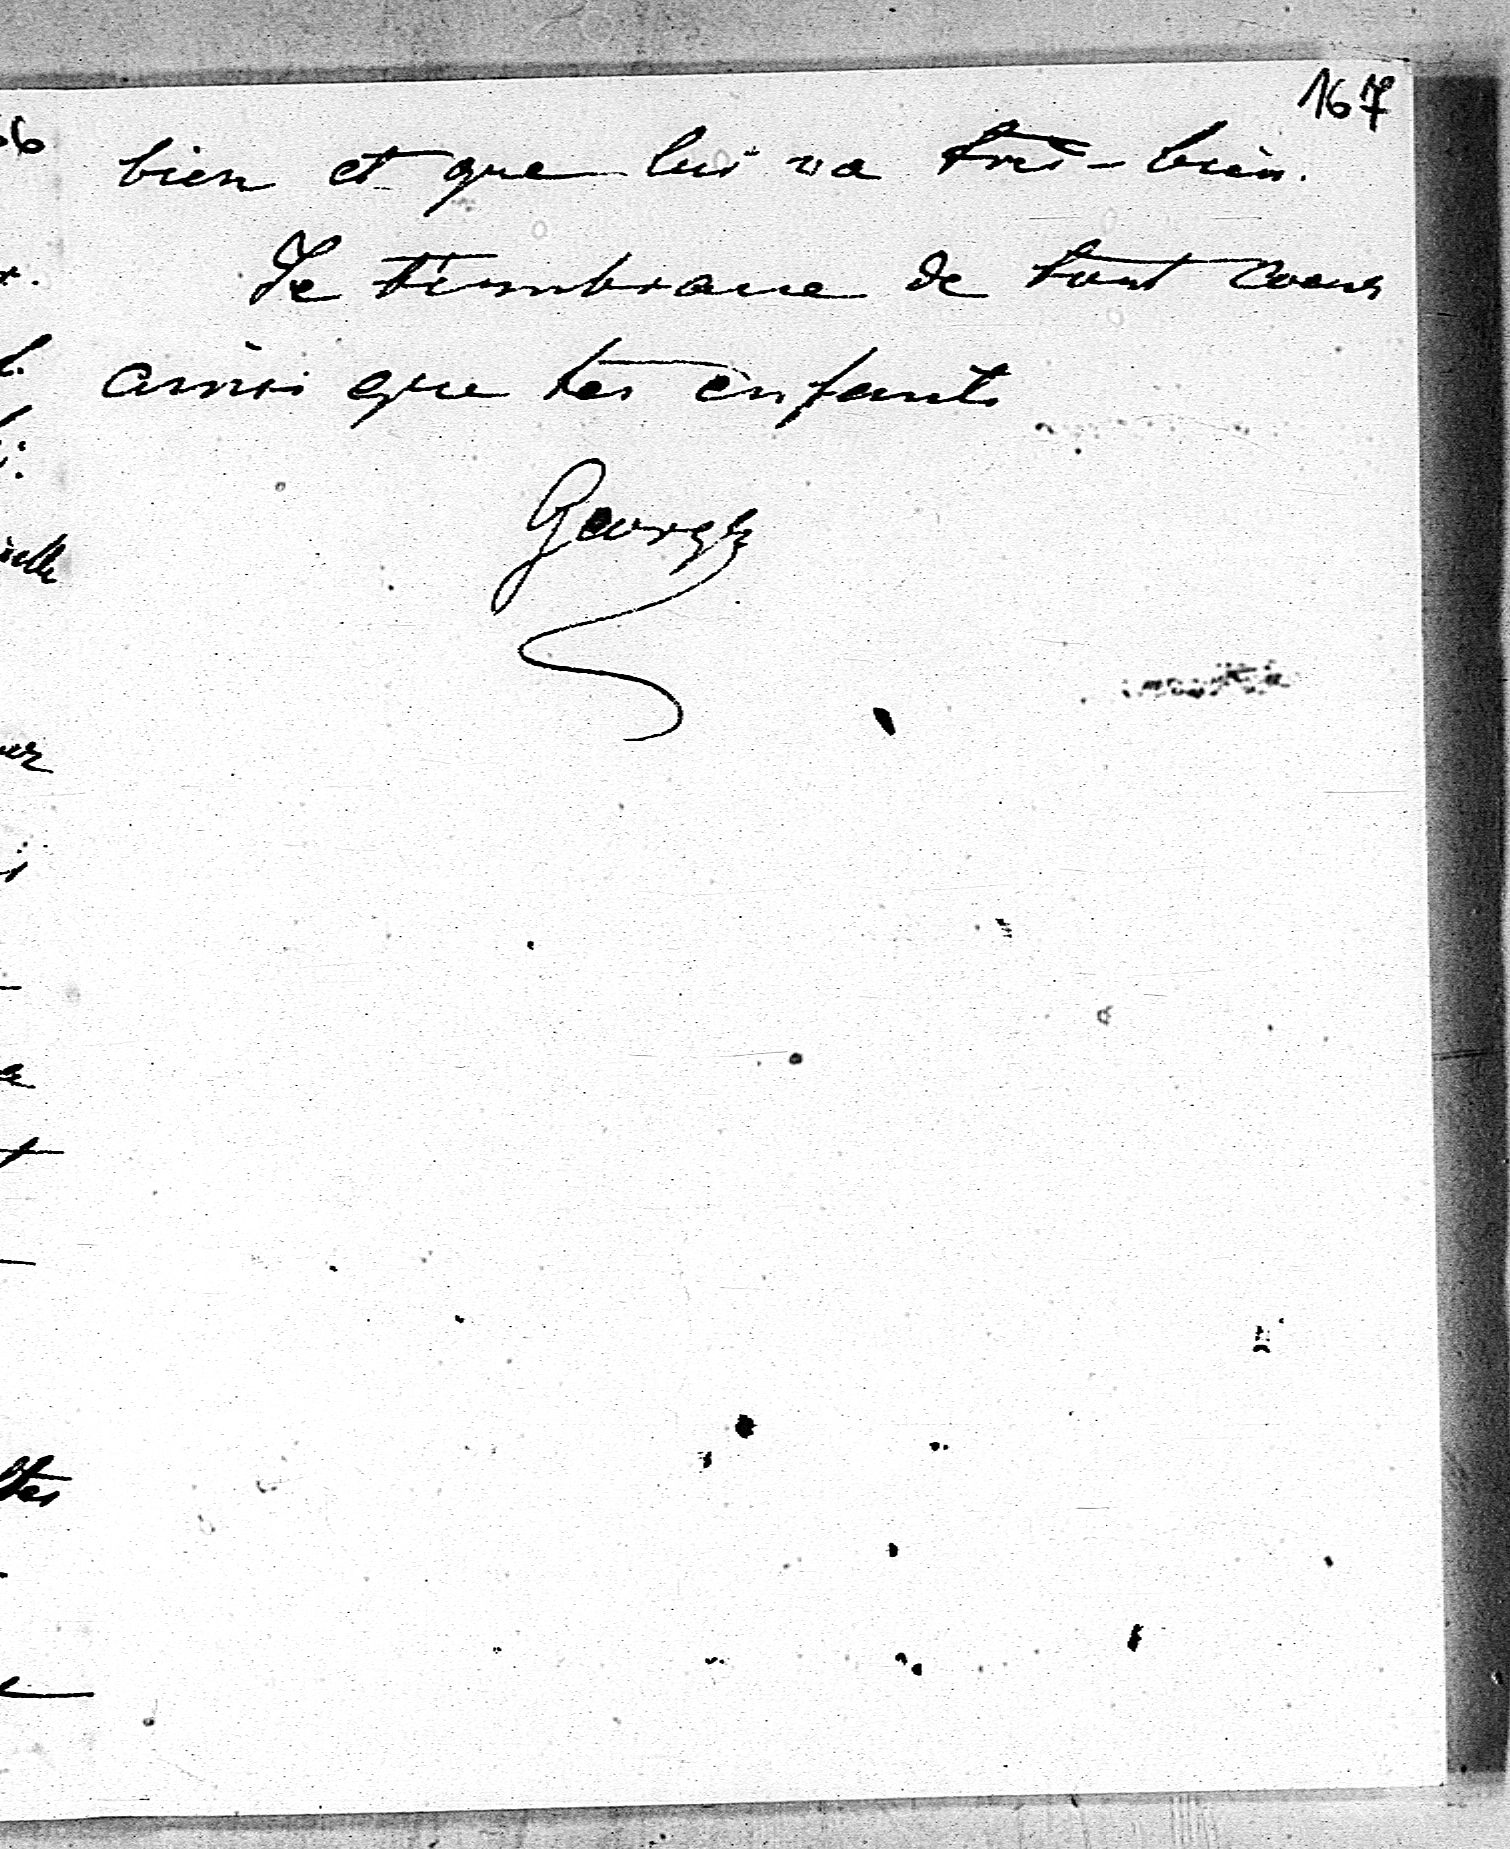 167
bien et que lui va très-bien.
Je t'embrasse de tout coeur
ainsi que tes enfants
Georges